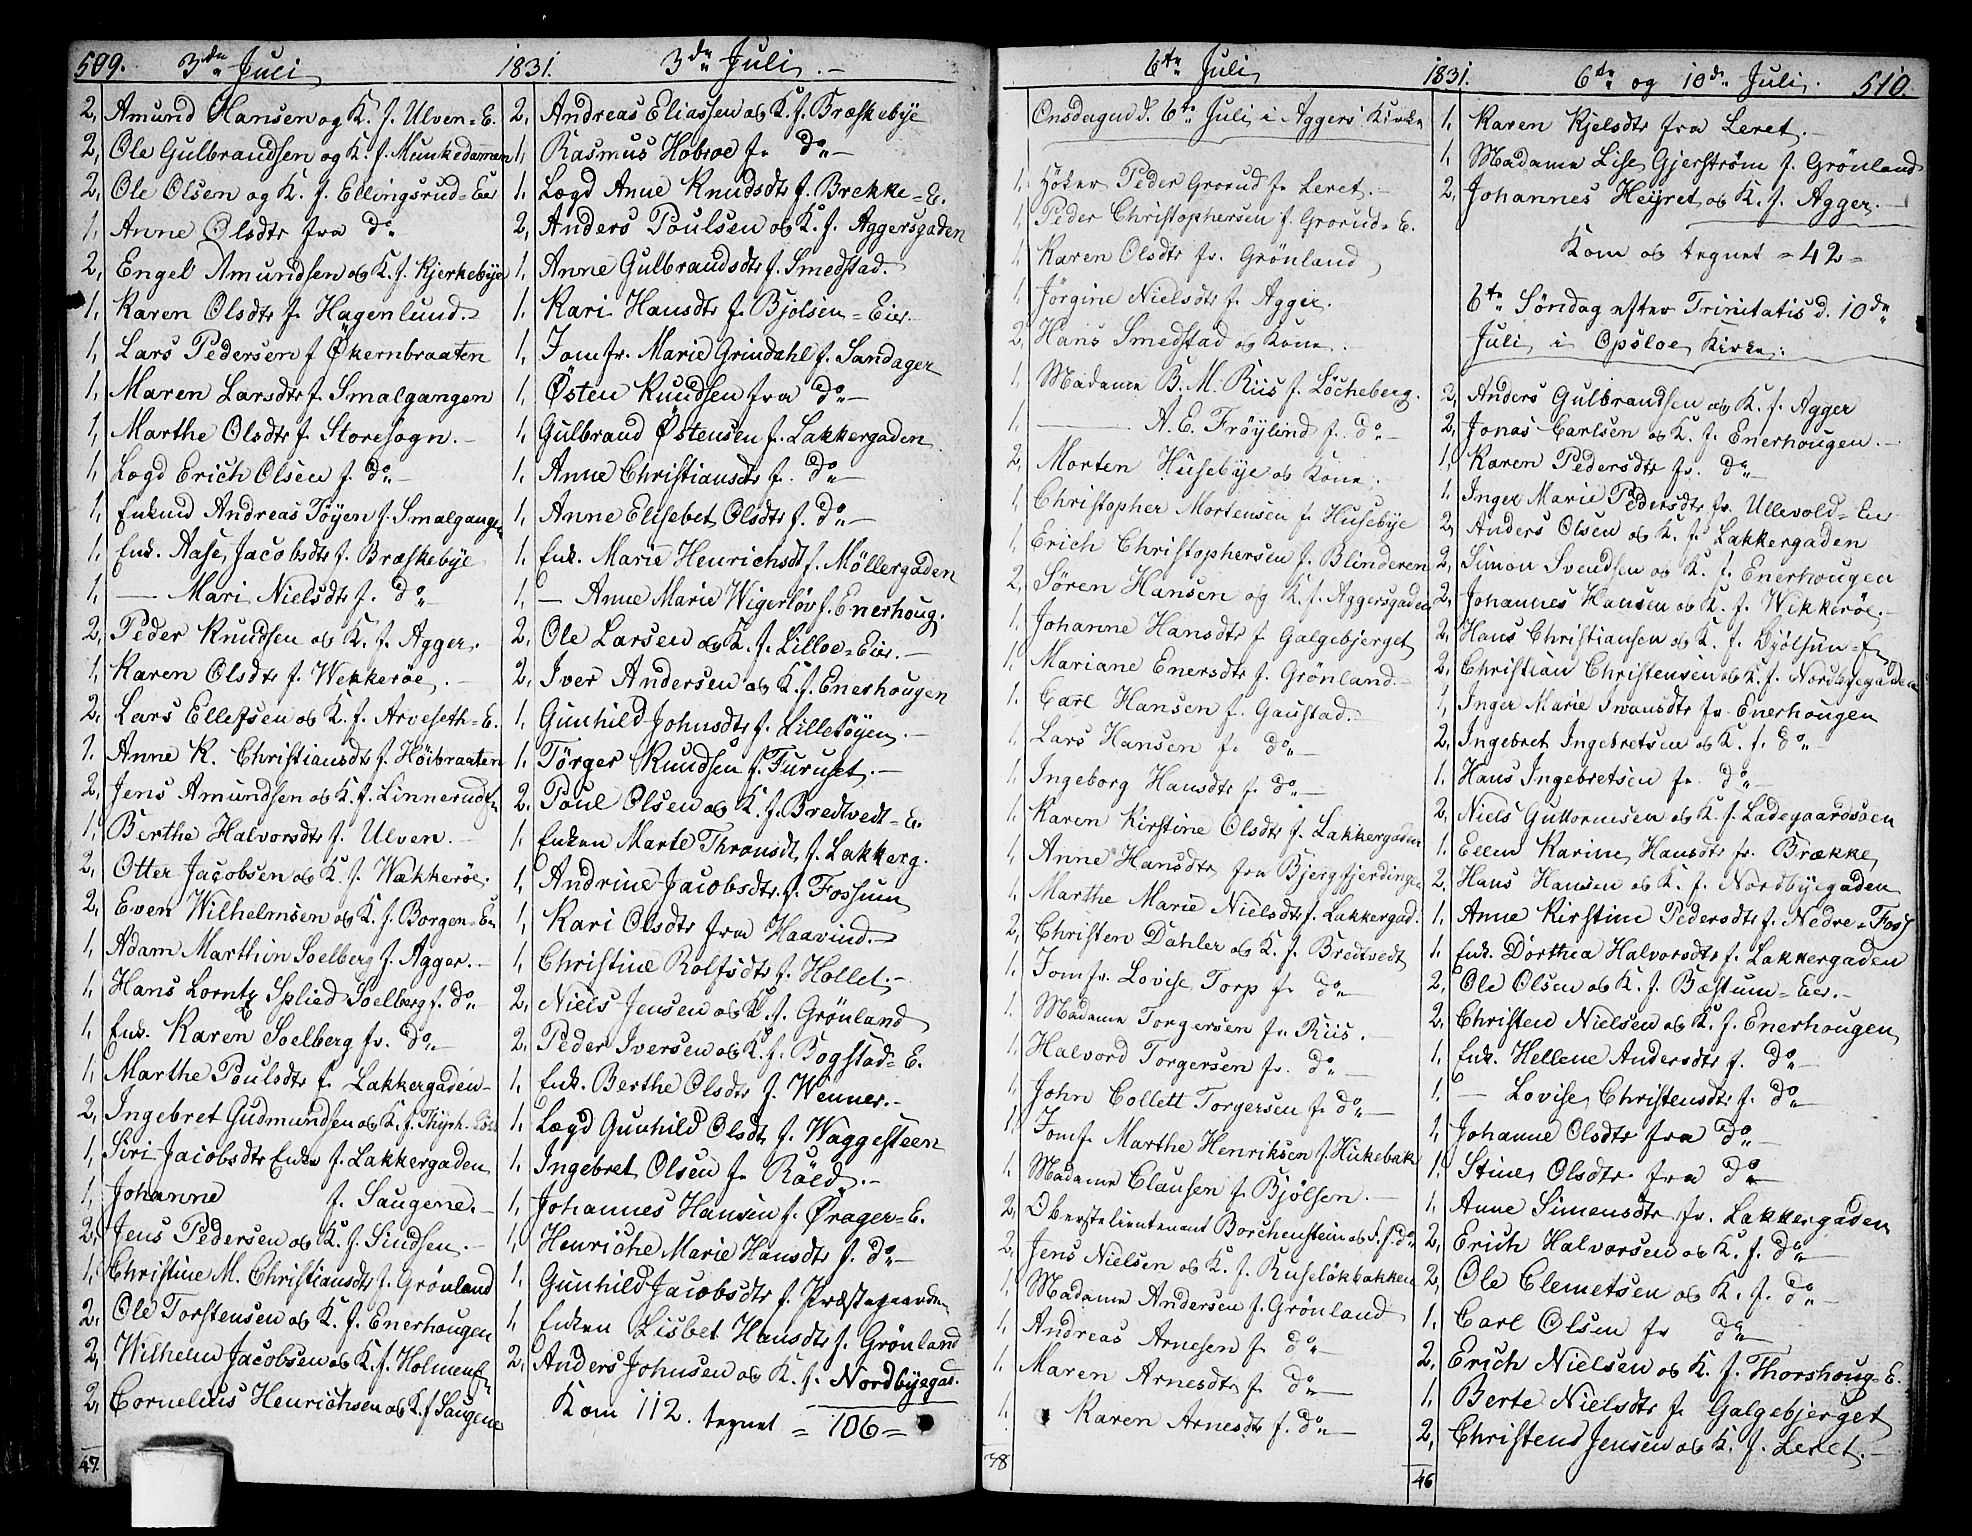 509. 3de Juli 1831. 3de Juli.
2, Amund Hansen og K. f. Ulven-E.
2, Ole Gulbrandsen og K. f. Munkedammen
2, Ole Olsen og K. f. Ellingsrud-Eier
1, Anne Olsdtr fra do
2, Engel Amundsen og K. f. Kjerkebye
1, Karen Olsdtr f. Hagenlund.
1, Lars Pedersen f Økernbraaten
1, Maren Larsdtr f. Smalgangen
1, Marthe Olsdtr f. Storesogn.
1, Lægd Erich Olsen f. do
1, Enkmd Andreas Töyen f. Smalgangen
1, Enk. Aase Jacobsdtr f. Bræskebye
1, — Mari Nielsdtr f. do
2, Peder Knudsen og K. f. Agger.
1, Karen Olsdtr f. Wekkeröe.
2, Lars Ellefsen og K. f. Arveseth-E.
1. Anne K. Christiansdtr f. Höibraaten
2, Jens Amundsen og K. f. Linnerud
1, Berthe Halvorsdtr f. Ulven.
2, Otter Jacobsen og K. f. Wækkeröe.
2, Even Wilhelmsen og K. f. Borgen-E
1, Adam Marthin Soelberg f. Agger.
1, Hans Lorntz Splied Soelberg f. do
1, Enk. Karen Soelberg fr. do
1, Marthe Poulsdtr f. Lakkergaden
2, Ingebret Gudmundsen og K. f.
1, Siri Jacobsdtr Enke f. Lakkergaden
1, Johanne f. Saugene.
2, Jens Pedersen og K. f. Sindsen.
1, Christine M. Christiansdtr f. Grönland
2, Ole Torstensen og K. f. Enerhougen
2, Wilhelm Jacobsen og K. f. Holmen
2, Cornelius Henrichsen og K. f Saugene
47.
2, Andreas Eliassen og K. f. Bræskebye
1, Rasmus Hobroe f. do
1. Lægd Anne Knudsdtr f. Brekke-E.
2, Anders Poulsen og K. f. Aggersgaden
1, Anne Gulbrandsdtr f. Smedstad.
1, Kari Hansdtr f. Bjölsen-Eier
1, Jomfr. Marie Grindahl f. Sandager
1, Østen Knudsen fra do
1, Gulbrand Østensen f. Lakkergaden
1, Anne Christiansdtr f. do
1, Anne Elisebet Olsdtr f. do
1, Enk. Marie Henrichsdt f. Möllergaden
1, — Anne Marie Wigerlöv f. Enerhoug.
2, Ole Larsen og K. f. Lilloe-Eier.
2, Iver Andersen og K. f. Enerhougen
1, Gunhild Johnsdtr f. Lilletöyen.
1. Törger Knudsen f. Furuset.
2, Poul Olsen og K. f. Bredtvedt-E.
1, Enken Marte Thronsdt f. Lakkerg.
1, Andrine Jacobsdtr. f. Fossum
1, Kari Olsdtr fra Haavind.
1, Christine Rolfsdtr f. Hollet.
2, Niels Jensen og K. f. Grönland
2, Peder Iversen og K. f. Bogstad-E.
1, Enk. Berthe Olsdtr f. Wenner.
1, Lægd Gunhild Olsdt f. Waggesteen
1, Ingebret Olsen f. Röed.
1, Johannes Hansen f. Ørager-E.
1, Henriche Marie Hansdtr f. do
1, Gunhild Jacobsdtr f. Præstegaarden
1, Enken Lisbet Hansdtr f. Grönland
2, Anders Johnsen og K. f. Nordbyegad.
Kom 112. tegnet = 106 =
6te Juli 1831. 6te og 10de Juli. 510.
Onsdagen d. 6te Juli i Aggers Kirke
1. Höker Peder Grorud fr. Leret.
1, Peder Christophersen f. Grorud-E.
1, Karen Olsdtr fr. Grönland
1, Jörgine Nielsdtr f. Agger.
2, Hans Smedstad og Kone.
1, Madame B. M. Riis f. Löcheberg.
1, — A. E. Fröylind f. do
2, Morten Husebye og Kone.
1, Christopher Mortensen f. Husebye
1, Erich Christophersen f. Blinderen
2, Sören Hansen og K. f. Aggersgaden
1, Johanne Hansdtr f Galgebjerget
1, Mariane Enersdtr f. Grönland.
1. Carl Hansen f. Gaustad.
1, Lars Hansen fr. do
1, Ingeborg Hansdtr f. do
1. Karen Kirstine Olsdtr f. Lakkergaden
1, Anne Hansdtr fra Bjergfjerdingen
1, Marthe Marie Nielsdtr f. Lakkergad.
2, Christen Dahler og K. f. Bredtvedt
1. Jomfr. Lovise Torp fr do
1. Madame Torgersen fr. Riis.
1, Halvord Torgersen fr. do
1, John Collett Torgersen f. do
1, Jomf. Marthe Henriksen f. Hukebak
1, Madame Clausen fr Bjölsen.
2, Oberstelieutenant Borchenstein og S. f. do
2, Jens Nielsen og K. f. Ruselökbakken
1, Madame Andersen f. Grönland
1, Andreas Arnesen f. do
1. Maren Arnesdtr f. do
1, Karen Arnesdtr f. do
38
1, Karen Kjelsdtr fra Leret.
1, Madame Lise Gjerström f. Grönland
2, Johannes Heyret og K. f. Agger.
Kom og tegnet = 42 =
6te Söndag efter Trinitatis d. 10de
Juli i Opsloe Kirke:
2, Anders Gulbrandsen og K. f. Agger
2, Jonas Carlsen og K. f. Enerhougen.
1, Karen Pedersdtr fr. do
1, Inger Marie Pedersdtr fr. Ullevold-Eier
2, Anders Olsen og K. f. Lakkergaden
2, Simon Svendsen og K. f. Enerhougen
2, Johannes Hansen og K. f. Wekkeröe.
2, Hans Christiansen og K. f. Bjölsen-E
2, Christian Christensen og K. f. Nordbyegaden
1, Inger Marie Iwansdtr fr Enerhougen
2, Ingebret Ingebretsen og K. f. do
1, Hans Ingebretsen fr. do
2, Niels Guttormsen og K. f. Ladegaardsöen
1. Ellen Karine Hansdtr fr. Brække
2, Hans Hansen og K. f. Nordbyegaden
1, Anne Kirstine Pedersdtr f. Nedre-Foss
1. Enk. Dorthea Halvorsdtr f. Lakkergaden
2, Ole Olsen og K. f. Bæstum-Eier.
2, Christen Nielsen og K. f. Enerhougen
1, Enk. Hellene Andersdtr f. do
1, — Lovise Christensdtr f. do
1, Johanne Olsdtr fra do
1, Stine Olsdtr fra do
1, Anne Simensdtr fr. Lakkergaden
2, Erich Halvorsen og K. f. do
2, Ole Clemetsen og K. f. do
1. Carl Olsen fr do
2, Erich Nielsen og K. f. Thorshoug-E.
1, Berte Nielsdtr f. Galgebjerget
2, Christen Jensen og K. f. Leret.
46